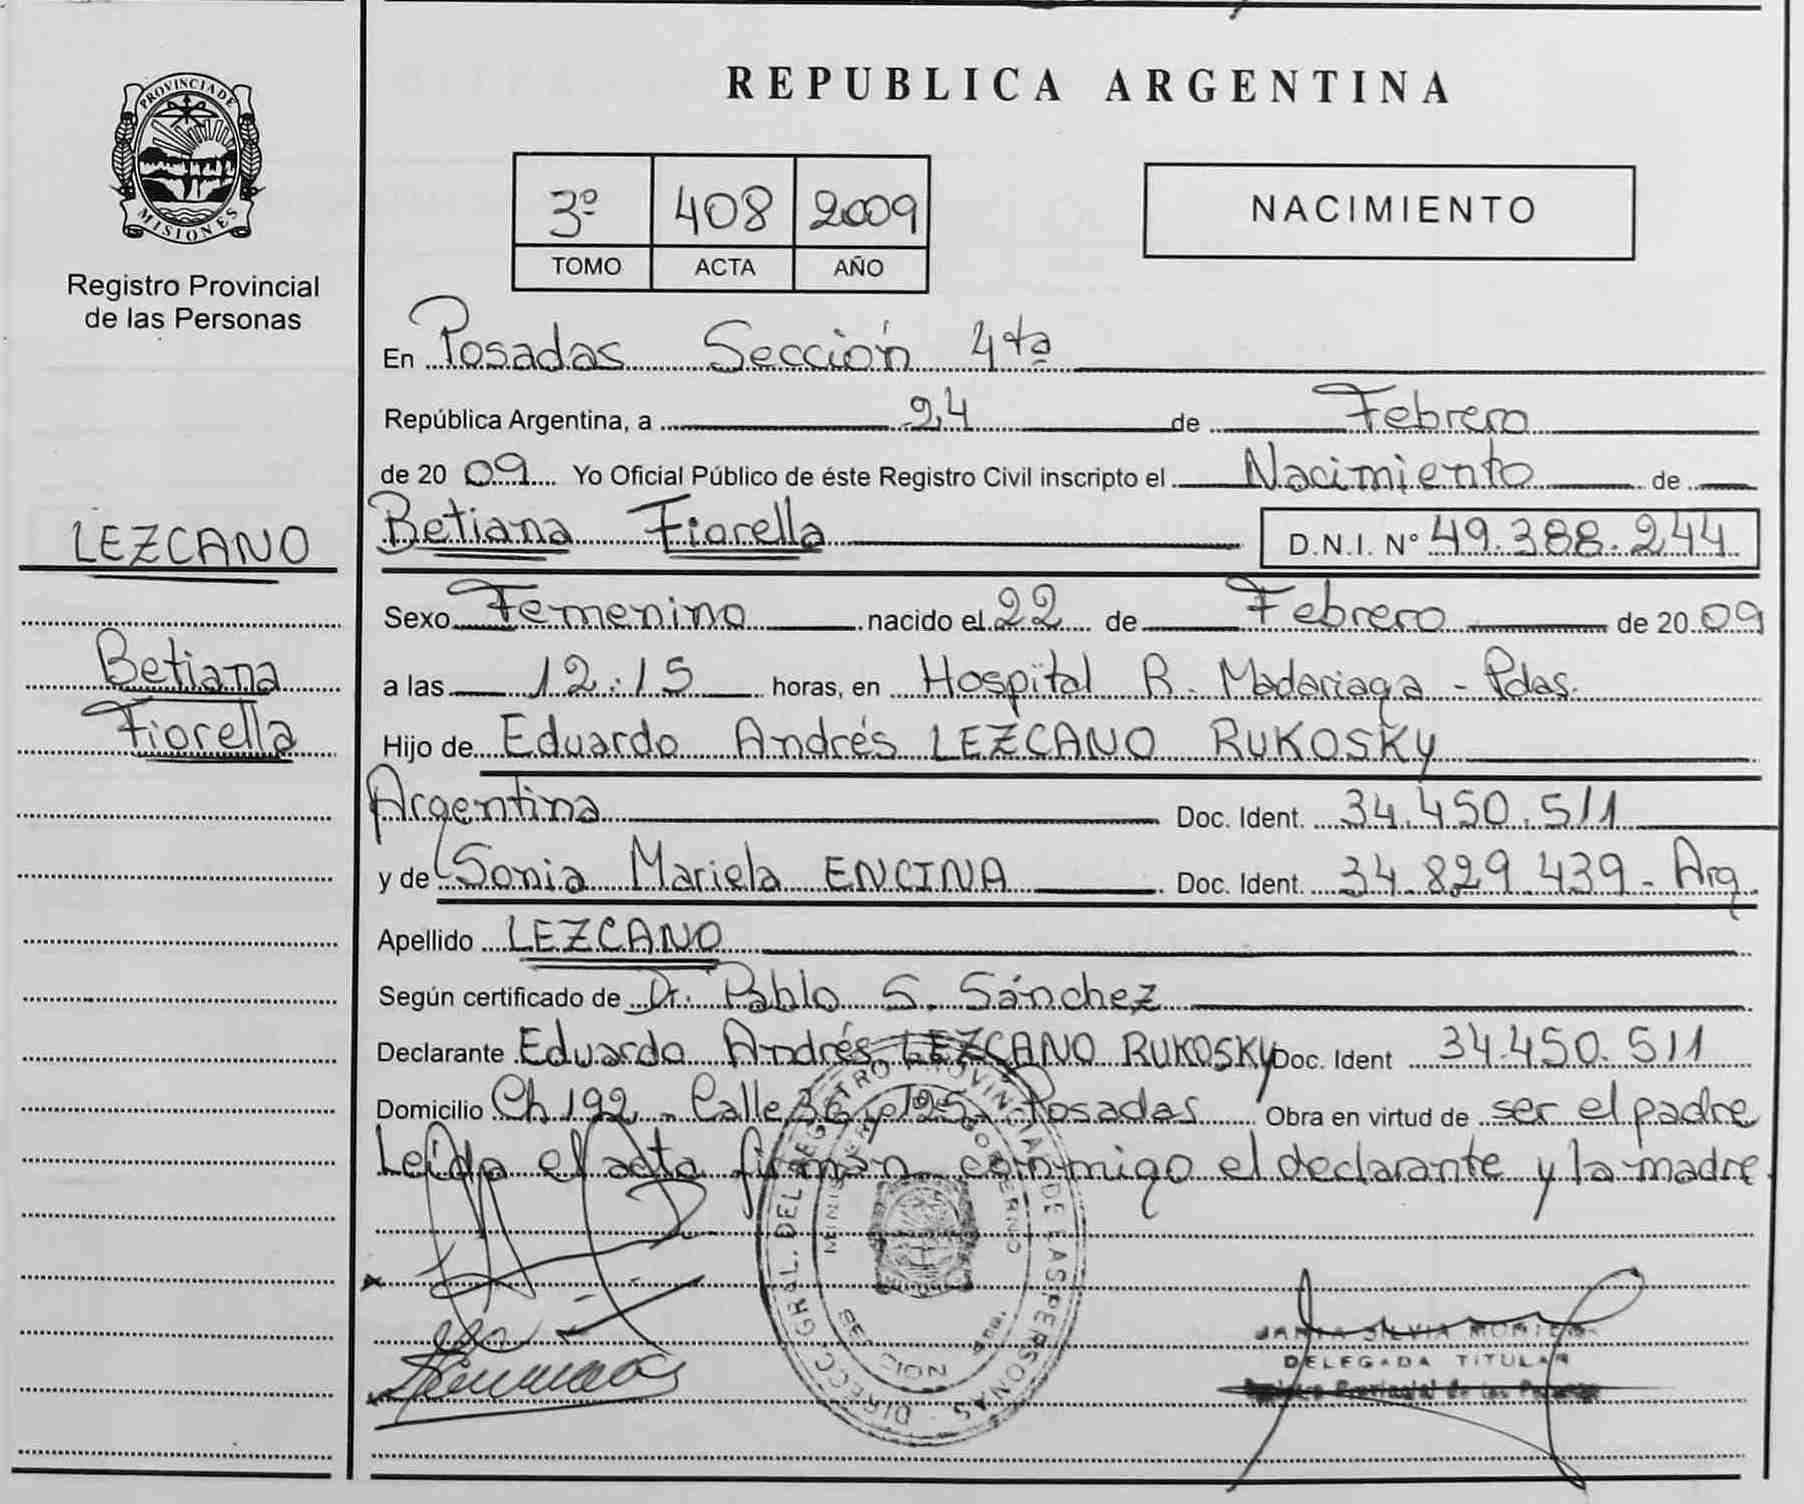 PROVINCIA DE
MISIONES
Registro Provincial
de las Personas
LEZCANO
Betiana
Fiorella
REPUBLICA ARGENTINA
3º 408 2009
TOMO ACTA AÑO
NACIMIENTO
En Posadas Sección 4ta
República Argentina, a 24 de Febrero
de 20 09 Yo Oficial Público de éste Registro Civil inscripto el Nacimiento de
Betiana Fiorella D.N.I. Nº 49.388.244
Sexo Femenino nacido el 22 de Febrero de 20 09
a las 12:15 horas, en Hospital R. Madariaga - Pdas.
Hijo de Eduardo Andrés LEZCANO RUKOSKY
Argentina Doc. Ident. 34.450.511
y de Sonia Mariela ENCINA Doc. Ident. 34.829.439 - Arg.
Apellido LEZCANO
Según certificado de Dr. Pablo S. Sánchez
Declarante Eduardo Andrés LEZCANO RUKOSKY Doc. Ident 34.450.511
Domicilio Ch 192 - Calle 36 y 125 - Posadas Obra en virtud de ser el padre
Leída el acta firman conmigo el declarante y la madre
DIRECC. GRAL. DEL REGISTRO PROVINCIAL DE LAS PERSONAS
SILVIA
DELEGADA TITULAR
Registro Provincial de las Personas